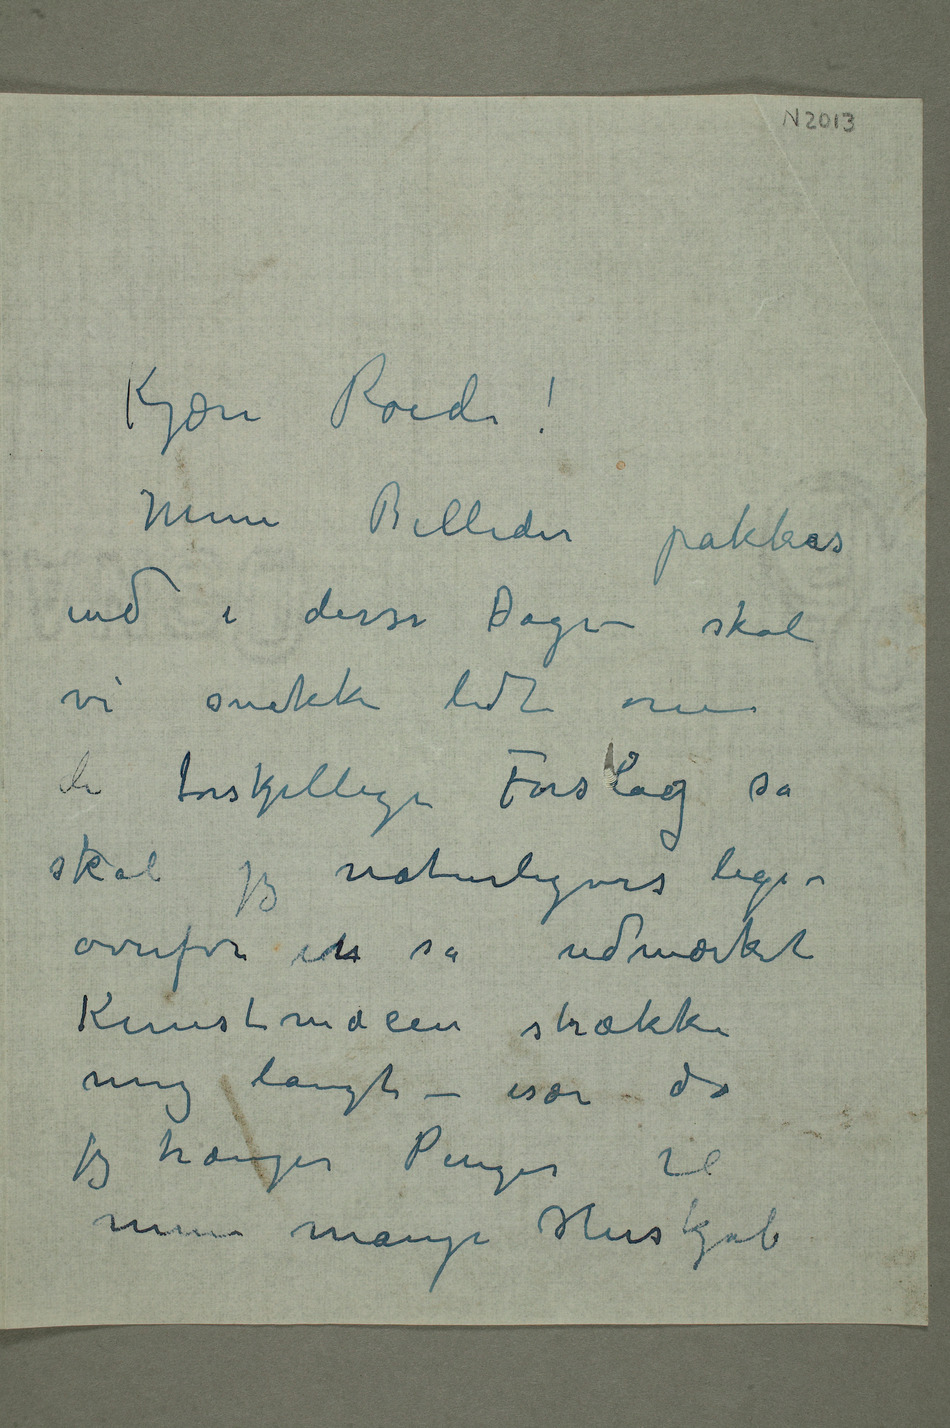 N 2013
Kjære Roede!
Mine Billeder pakkes
ind i disse Dage – skal
vi snakke lidt om
de forskjellige Forslag så
skal jeg naturligvis lige-
ovenfor en så udmærket
Kunstmæcen strække
mig langt – især da
jeg trænger Penger til
mine mange Huskjøb